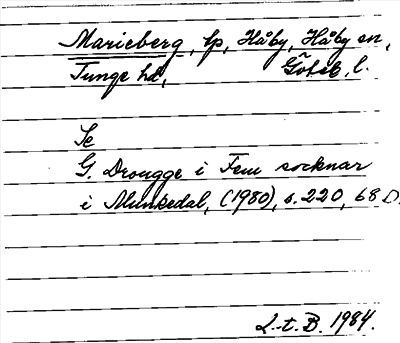 Marieberg, lp, Håby, Håby sn,
Tunge hd, Göteb. l.
Se
G. Drougge i Fem socknar
i Munkedal, (1980), s. 220, 68 D.
L-t. B. 1984.